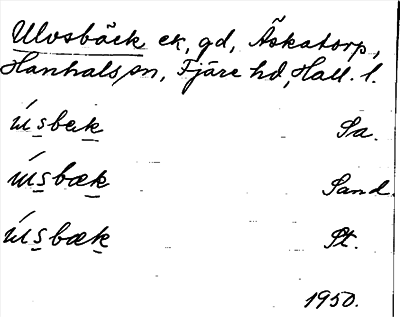 Ulvsbäck ek, gd, Äskatorp,
Hanhals sn, Fjäre hd, Hall. l.
ú̀lsbæk Sa.
ú̀lsbæk Sand.
ú̀lsbæk St.
1950.